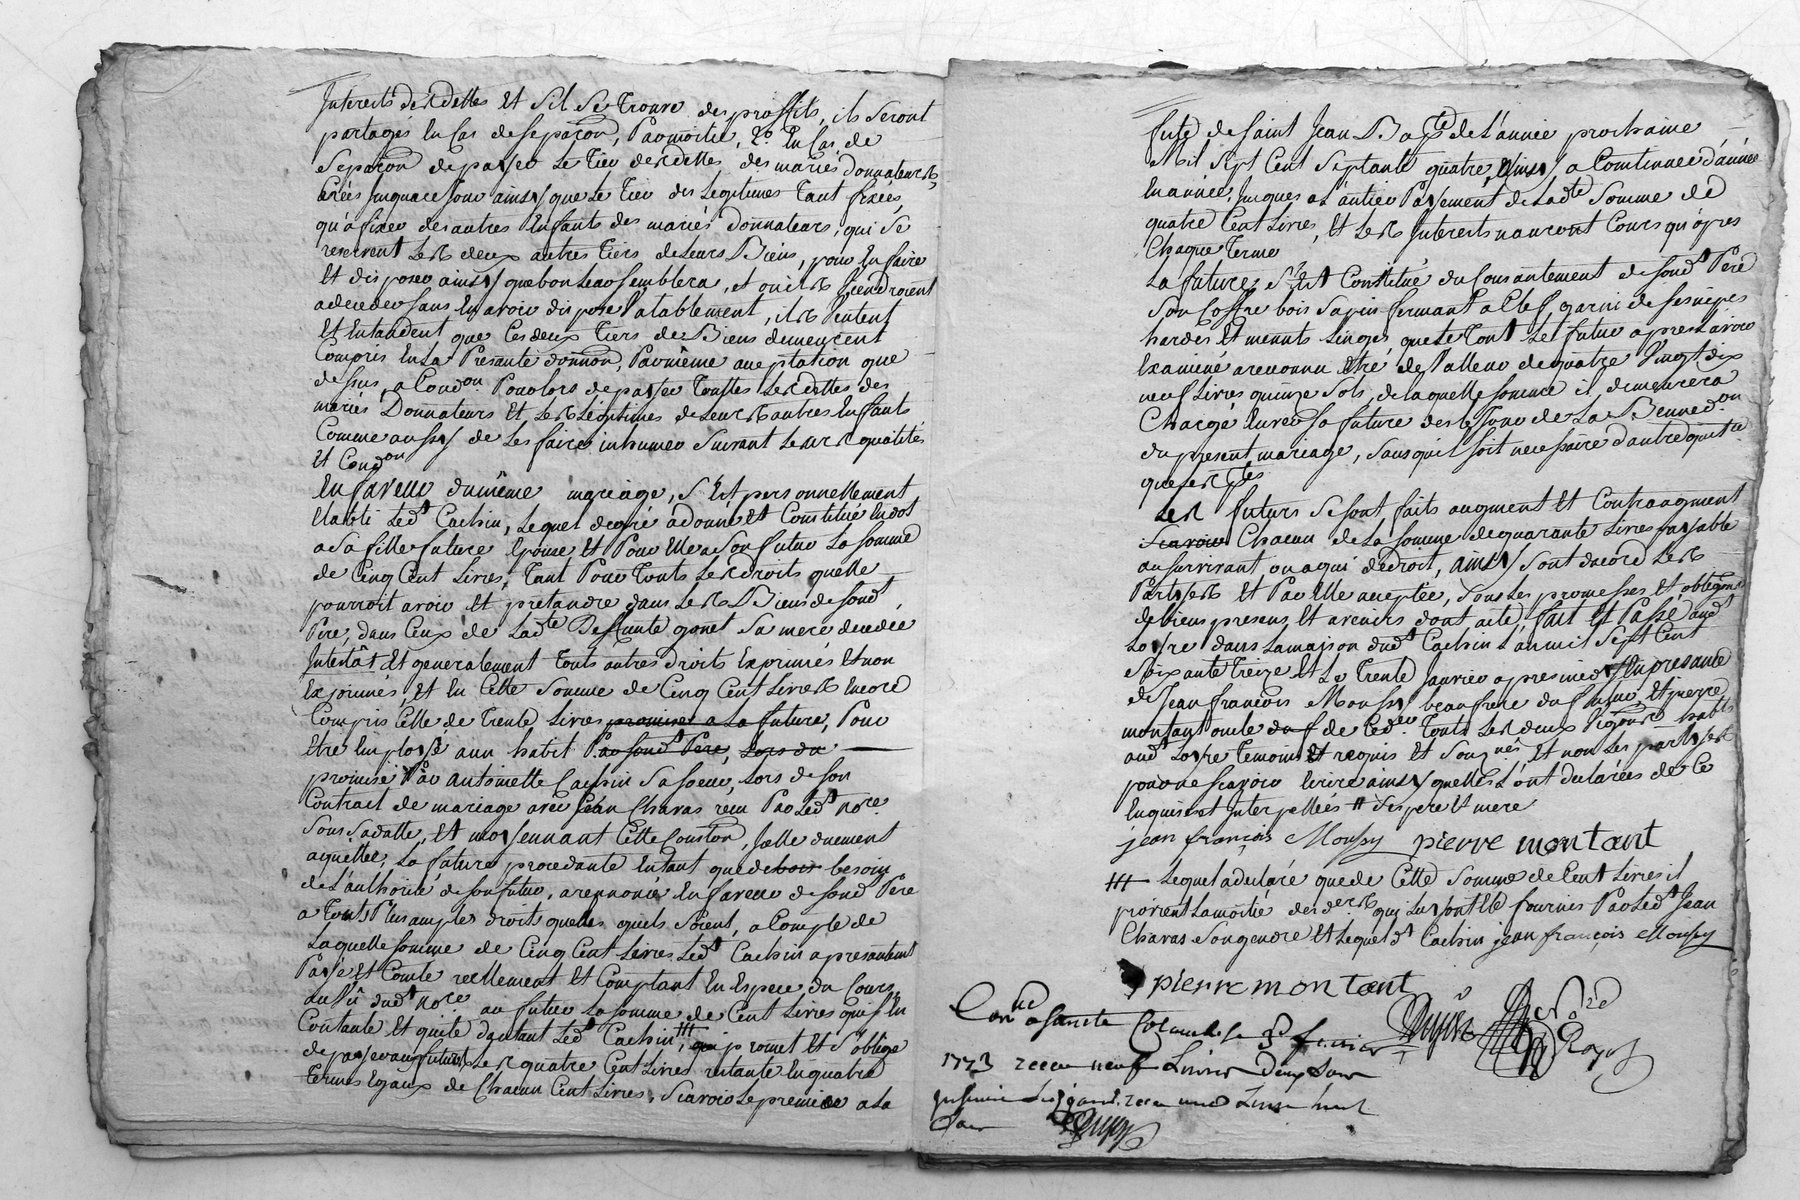 Interests des dettes Et s'il se trouve des proffits, ils seront
partagés En Cas de separon, Par moitié, 2º En Cas de
separon de payer Le Tier des dettes des mariés donnateurs,
Créés Jusqua ce Jour ainsy que Le Tier des Legitimes Tant fixées,
qu'a fixer des autres Enfants des mariés donnateurs, qui se
reservent Les deux autres Tiers de Leurs Biens, pour En faire
Et disposer ainsy que bon Leur semblera, et ou ils viendroient
a deceder sans En avoir disposé Valablement, ils Veulent
Et Entandent que Ces deux Tiers de Biens demeurent
Compris En La Presante donnon, Par même acceptation que
dessus, a Condon Pour Lors de payer Toutes Les dettes des
mariés Donnateurs Et Les Légitimes de Leurs autres Enfants
Comme aussy de Les faire inhumer suivant Leurs qualités
Et Condon
En faveur du même mariage, s'Est personnellement
Etabli Led Cachin, Lequel de gré a donné Et Constitué En dot
a sa fille future Epouse Et Pour Elle a son futur La somme
de Cinq Cent Livres, Tant Pour Touts Les droits quelle
pourroit avoir Et pretandre dans Les Biens de sond
Pere, dans Ceux de Ladte Deffunte gonet sa mere decedée
Intestat Et generalement Touts autres droits Exprimés Et non
Exprimés, Et En Cette somme de Cinq Cent Livres Encore
Compris Celle de Trente Livres promises a La future, Pour
Etre Employé a un habit Par sond Pere, Lors du
promise Par antoinette Cachin sa soeur, Lors de son
Contract de mariage avec Jean Charas recu Par Led Nore
sous sa datte, Et moyennant Cette Conston, Jcelle duement
aquittée, La future procedante En tant que de bois besoin
de L'authorité de son futur, a renoncé En faveur de sond Pere
a Touts Plus amples droits quelles quels soient, a Compte de
Laquelle somme de Cinq Cent Livres Led Cachin a presantement
Payé Et Comté reellement Et Comptant En Espece du Cours
au Vû dud Nore au futur La somme de Cent Livres qui s'En
Contante Et quite d'autant Led Cachin, qui promet Et s'oblige
de payer aux futurs Les quatre Cent Livres restante En quatre
Termes Egaux de Chacun Cent Livres, scavoir Le premier a La
fete de saint Jean Bapte de L'année prochaine
Mil sept Cent septante quatre, ainsy a Continuer d'année
En année, Jusques a L'antier Payement de Ladte somme de
quatre Cent Livres, Et Les Interests n'auront Cours qu'apres
Chaque Terme
La future s'Est Constitué du Consantement de sond Pere
son Coffre bois sapin fermant a Clef, garni de ses nipes
hardes Et menuts Linges que Le Tout Le futur apres L'avoir
Examiné a reconnu Etre de Valleur de quatre Vingt dix
neuf Livres quinze sols, de Laquelle somme il demeurera
Chargé Envers sa future des Le Jour de La Bennedon
du present mariage, sans qu'il soit necessaire d'autre quitce
que ses
Les futurs se sont faits augment Et Contraugment
scavoir Chacun de La somme de quarante Livres payable
au survivant ou a qui de droit, ainsy sont d'acord Les
Parties Et Par Elle acceptée, sous Les promesses Et obligons
de biens presens Et avenirs dont acte, fait Et Passé aud
Loyre dans La maison dud Cachin L'an mil sept Cent
soixante Treize Et Le Trente Janvier apres midi En presance
de Jean françois Moussy beaufrere du futur Et pierre
montant oncle du f de Ced Touts Les deux habts
aud Loyre Temoins Et requis Et Sougnés Et non Les parties
pour ne scavoir Ecrire ainsy quelles L'ont declarées de Ce
Enquis Et Interpellées # ses pere Et mere
jean françois Moussy pierre montant
### Lequel a declaré que de Cette somme de Cent Livres il
provient La moitié des deniers qui Luy ont Eté fournis Par Led Jean
Charas son gendre Et Lequel d Cachin jean françois Moussy
pierre montant
Conlle
1773 receu neuf Livres deux sous
receu une Livre huit
sous